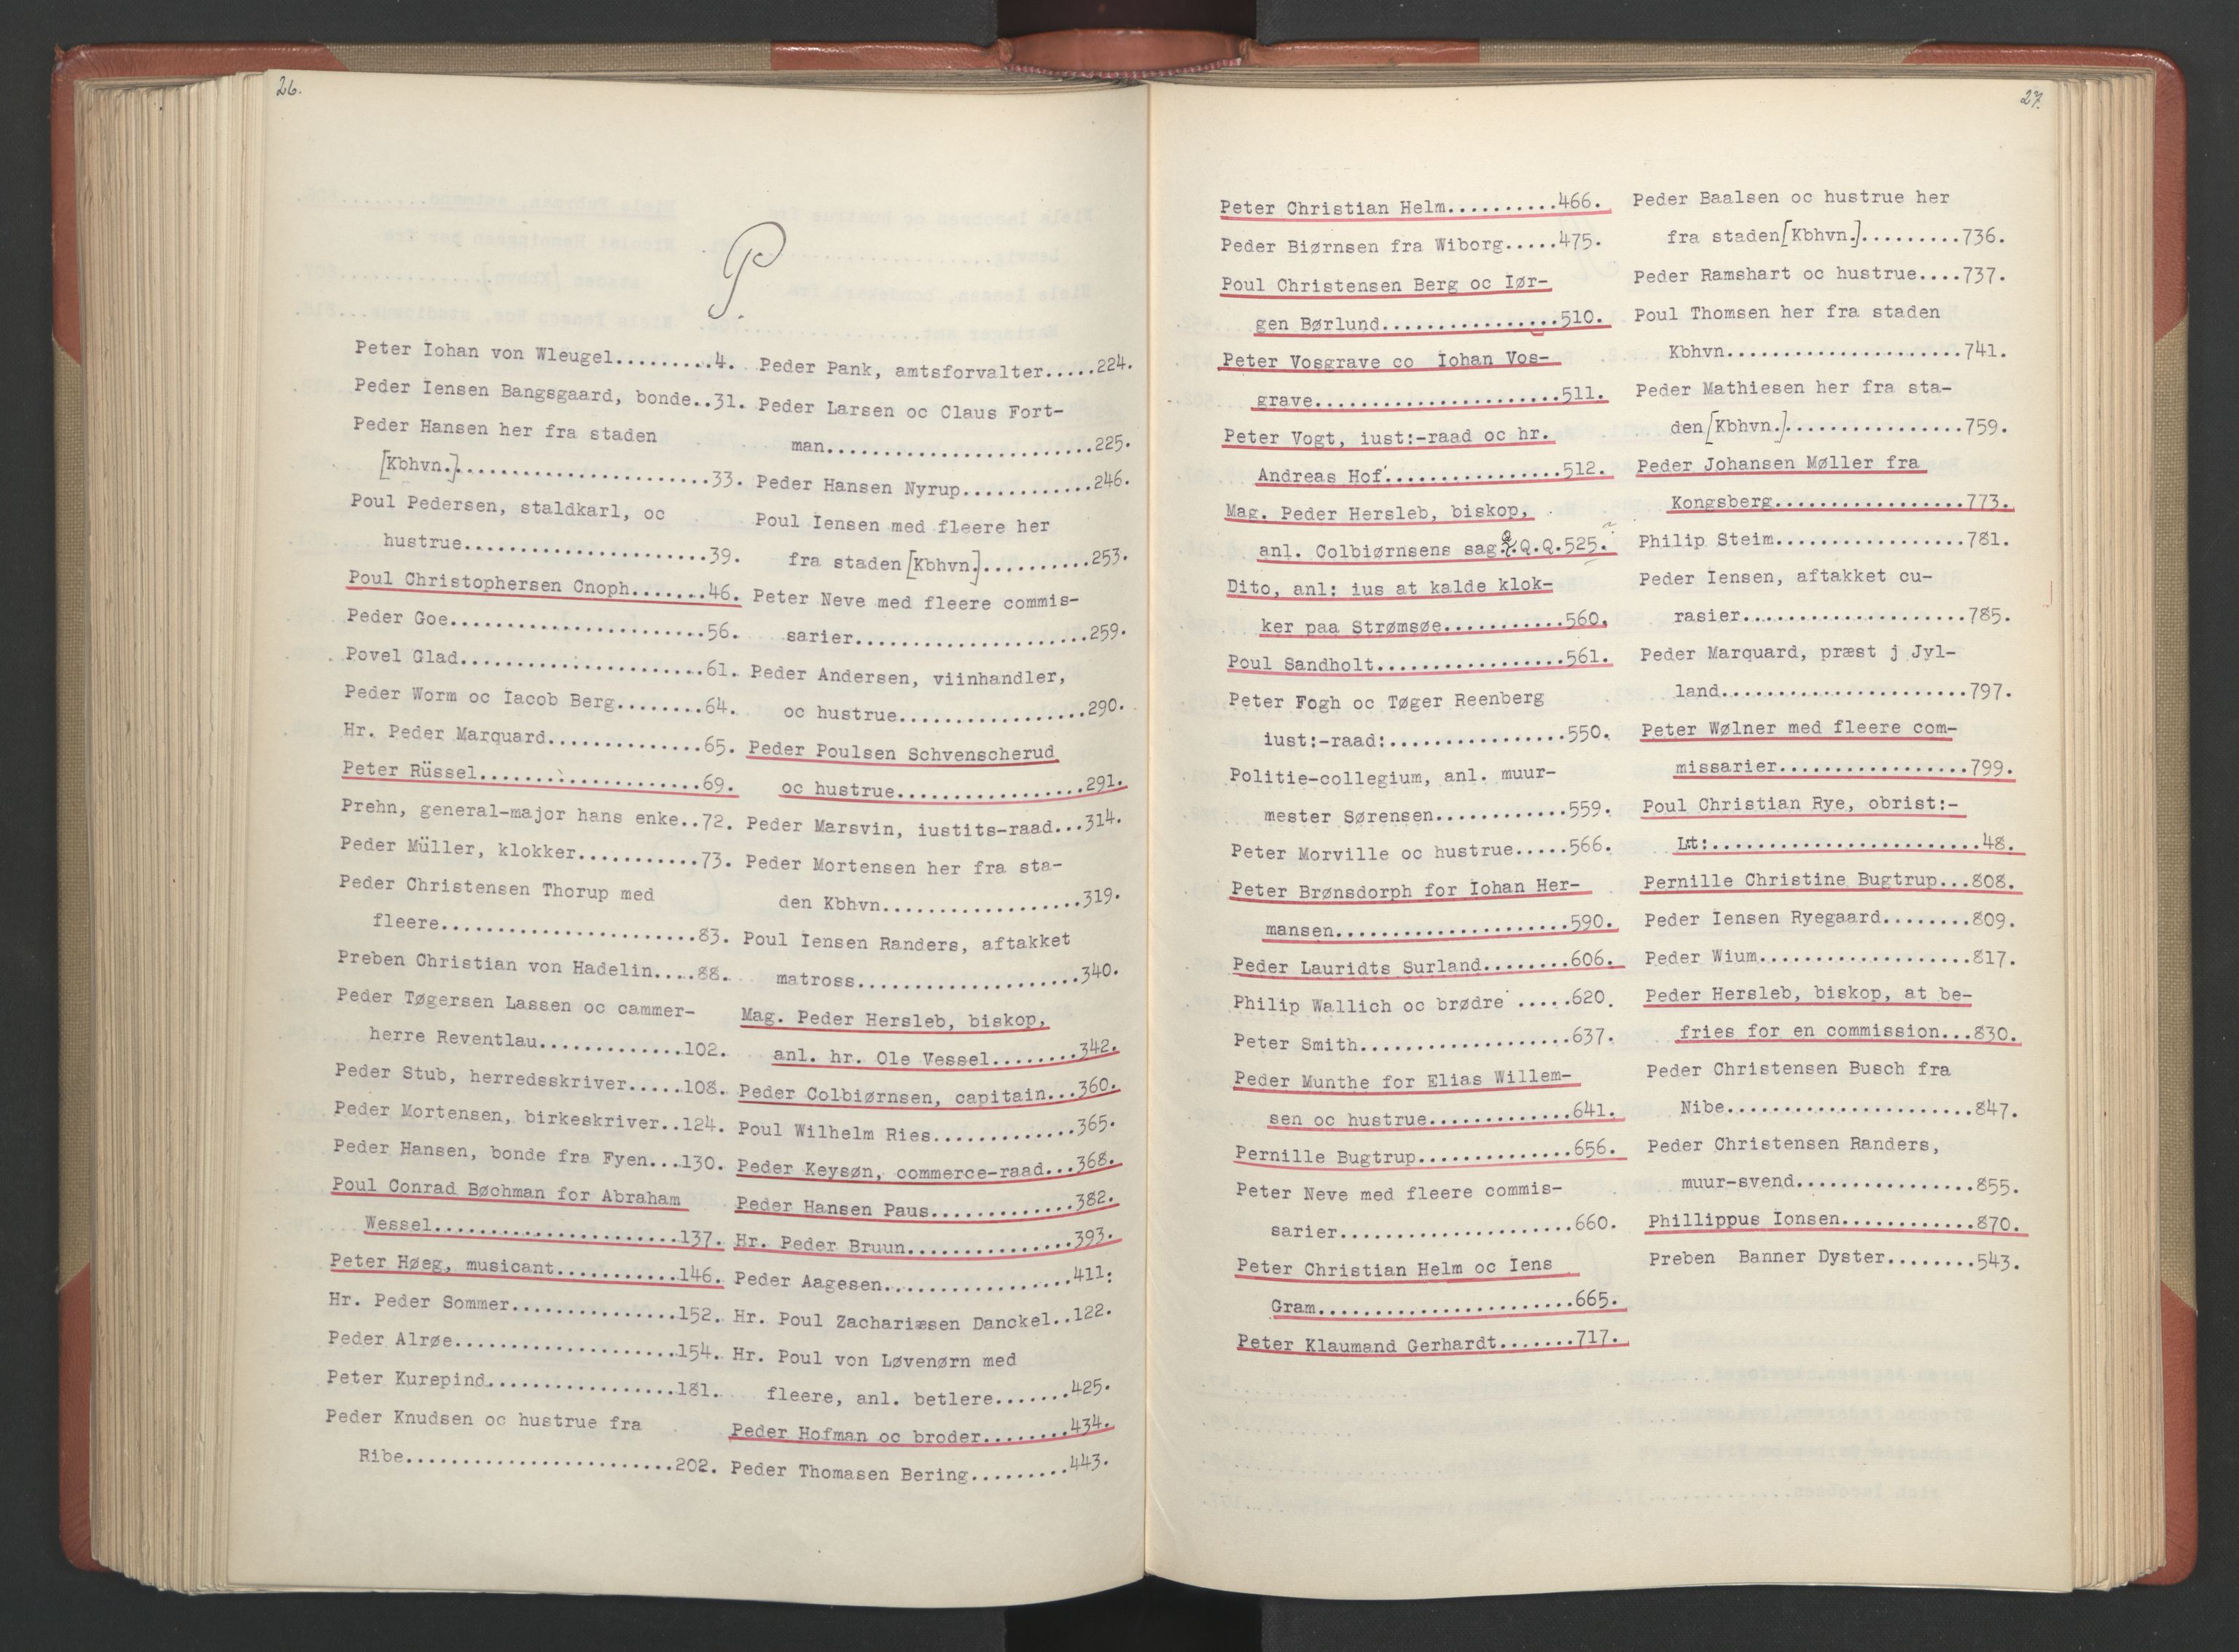 26.
P.
Peter Iohan von Wleugel.........4.
Peder Iensen Bangsgaard, bonde..31.
Peder Hansen her fra staden
[Kbhvn.]......................33.
Poul Pedersen, staldkarl, oc
hustrue.......................39.
Poul Christophersen Cnoph.......46.
Peder Goe.......................56.
Povel Glad......................61.
Peder Worm oc Iacob Berg........64.
Hr. Peder Marquard..............65.
Peter Rüssel....................69.
Prehn, general-major hans enke..72.
Peder Müller, klokker...........73.
Peder Christensen Thorup med
fleere........................83.
Preben Christian von Hadelin....88.
Peder Tøgersen Lassen oc cammer-
herre Reventlau.............102.
Peder Stub, herredsskriver.....108.
Peder Mortensen, birkeskriver..124.
Peder Hansen, bonde fra Fyen...130.
Poul Conrad Bøchman for Abraham
Wessel.......................137.
Peter Høeg, musicant...........146.
Hr. Peder Sommer...............152.
Peder Alrøe....................154.
Peter Kurepind.................181.
Peder Knudsen oc hustrue fra
Ribe.........................202.
Peder Pank, amtsforvalter.....224.
Peder Larsen oc Claus Fort-
man.........................225.
Peder Hansen Nyrup............246.
Poul Iensen med fleere her
fra staden [Kbhvn.]..........253.
Peter Neve med fleere commis-
sarier......................259.
Peder Andersen, viinhandler,
oc hustrue..................290.
Peder Poulsen Schvenscherud
oc hustrue..................291.
Peder Marsvin, iustits-raad...314.
Peder Mortensen her fra sta-
den Kbhvn...................319.
Poul Iensen Randers, aftakket
matross.....................340.
Mag. Peder Hersleb, biskop,
anl. hr. Ole Vessel........342.
Peder Colbiørnsen, capitain...360.
Poul Wilhelm Ries.............365.
Peder Keysøn, commerce-raad...368.
Peder Hansen Paus.............382.
Hr. Peder Bruun...............393.
Peder Aagesen.................411.
Hr. Poul Zachariæsen Danckel..122.
Hr. Poul von Løvenørn med
fleere, anl. betlere.......425.
Peder Hofman oc broder........434.
Peder Thomasen Bering.........443.
27.
Peter Christian Helm..........466.
Peder Biørnsen fra Wiborg.....475.
Poul Christensen Berg oc Iør-
gen Børlund................510.
Peter Vosgrave co Iohan Vos-
grave......................511.
Peter Vogt, iust:-raad oc hr.
Andreas Hof................512.
Mag. Peder Hersleb, biskop,
anl. Colbiørnsens sag.Q.Q.525.
Dito, anl: ius at kalde klok-
ker paa Strømsøe...........560.
Poul Sandholt.................561.
Peter Fogh oc Tøger Reenberg
iust:-raad:................550.
Politie-collegium, anl. muur-
mester Sørensen............559.
Peter Morville oc hustrue.....566.
Peter Brønsdorph for Iohan Her-
mansen.....................590.
Peder Lauridts Surland........606.
Philip Wallich oc brødre .....620.
Peter Smith...................637.
Peder Munthe for Elias Willem-
sen oc hustrue.............641.
Pernille Bugtrup..............656.
Peter Neve med fleere commis-
sarier.....................660.
Peter Christian Helm oc Iens
Gram.......................665.
Peter Klaumand Gerhardt.......717.
Peder Baalsen oc hustrue her
fra staden[Kbhvn.].........736.
Peder Ramshart oc hustrue....737.
Poul Thomsen her fra staden
Kbhvn......................741.
Peder Mathiesen her fra sta-
den[Kbhvn.]................759.
Peder Johansen Møller fra
Kongsberg.................773.
Philip Steim.................781.
Peder Iensen, aftakket cu-
rasier....................785.
Peder Marquard, præst j Jyl-
land......................797.
Peter Wølner med fleere com-
missarier.................799.
Poul Christian Rye, obrist:-
Lt:........................48.
Pernille Christine Bugtrup...808.
Peder Iensen Ryegaard........809.
Peder Wium...................817.
Peder Hersleb, biskop, at be-
fries for en commission...830.
Peder Christensen Busch fra
Nibe......................847.
Peder Christensen Randers,
muur-svend................855.
Phillippus Ionsen............870.
Preben Banner Dyster........543.